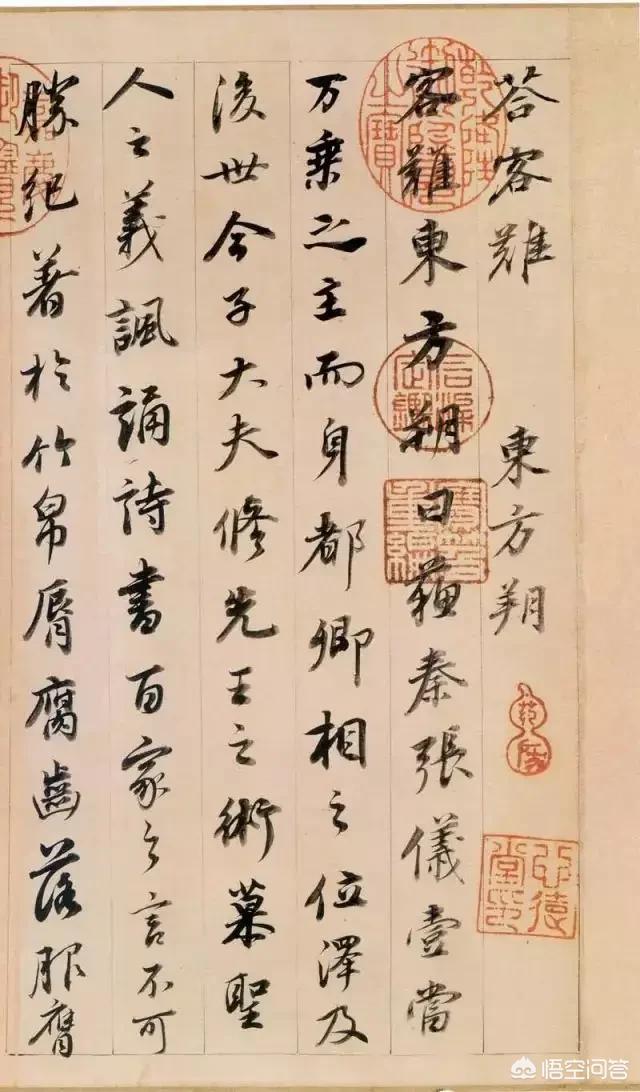 荅客難 東方朔
客難東方朔曰蘓秦張儀壹當
万乘之主而身都卿相之位澤及
後世今子大夫修先王之術慕聖
人之義諷誦詩書百家之言不可
勝紀著於竹帛脣腐齒落服膺
悟空问答